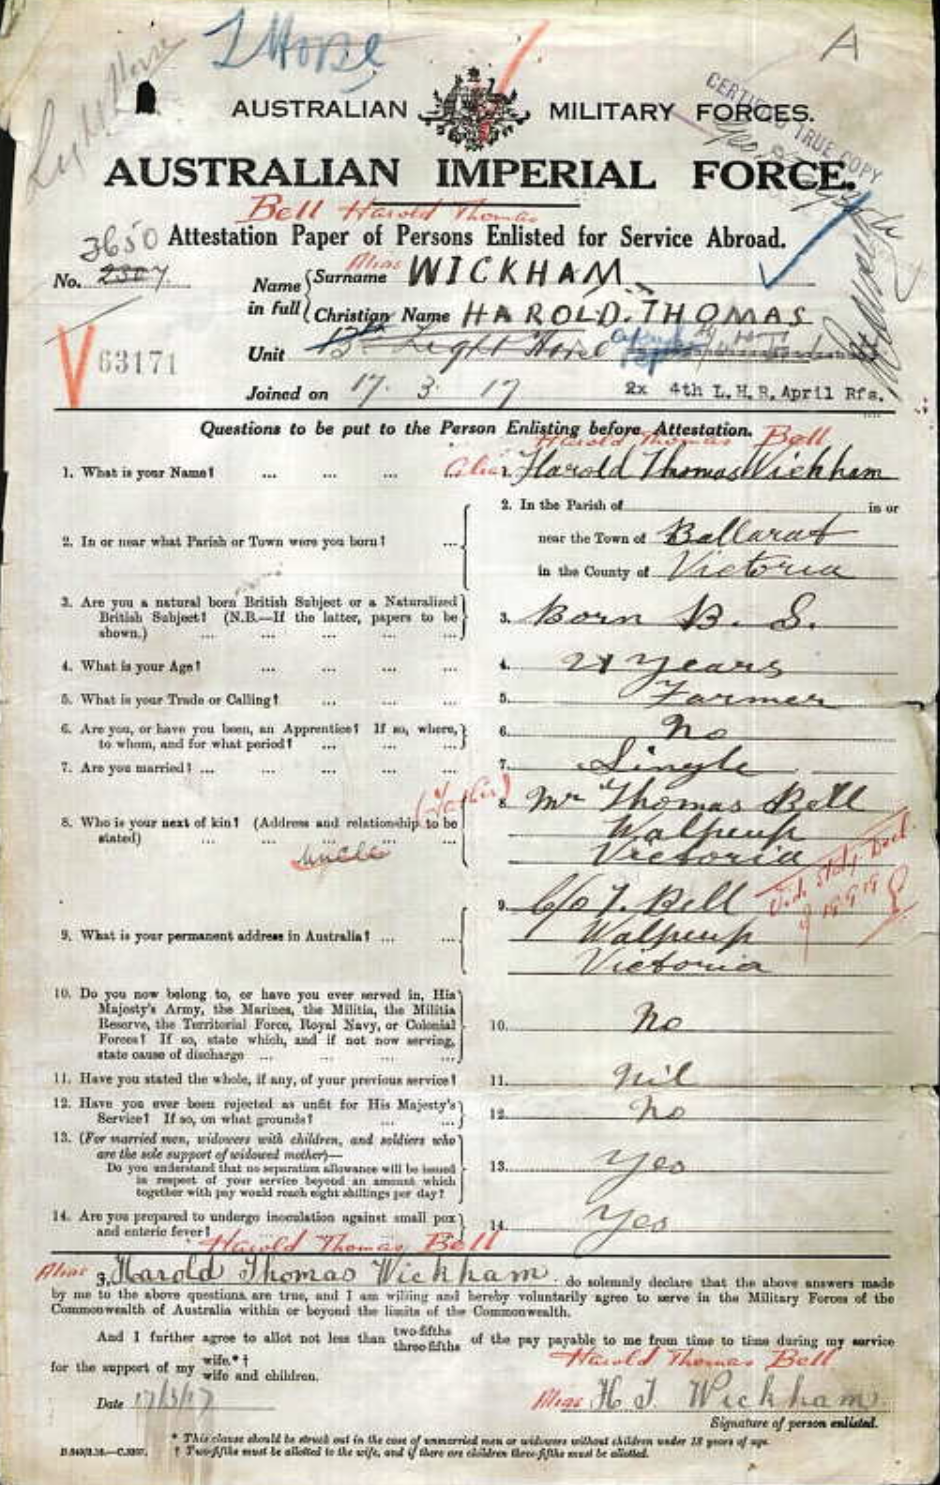 Light Horse
L Horse
A
AUSTRALIAN MILITARY FORCES.
CERTIFIED TRUE COPY
AUSTRALIAN IMPERIAL FORCE.
Bell Harold Thomas
3650 Attestation Paper of Persons Enlisted for Service Abroad.
No. 2307. Name in full { Surname Alias WICKHAM
Christian Name HAROLD. THOMAS
63171
Unit 13th Light Horse
Joined on 17. 3. 17 2x 4th L.H.R. April Rfs.
Questions to be put to the Person Enlisting before Attestation.
Harold Thomas Bell
1. What is your Name? ... ... ... Alias Harold Thomas Wickham
2. In or near what Parish or Town were you born? ... 2. In the Parish of in or
near the Town of Ballarat
in the County of Victoria
3. Are you a natural born British Subject or a Naturalized
British Subject? (N.B.—If the latter, papers to be
shown.) ... ... ... ... 3. Born B. S.
4. What is your Age? ... ... ... 4. 21 years
5. What is your Trade or Calling? ... ... ... 5. Farmer
6. Are you, or have you been, an Apprentice? If so, where,
to whom, and for what period? ... ... ... 6. No
7. Are you married? ... ... ... ... 7. Single
(Father)
8. Who is your next of kin? (Address and relationship to be
stated) ... ... ... ... 8. Mr Thomas Bell
Uncle
Walpeup
Victoria
Vide Staty Decl
18 9 19
9. What is your permanent address in Australia? ... ... 9. C/o T. Bell
Walpeup
Victoria
10. Do you now belong to, or have you ever served in, His
Majesty's Army, the Marines, the Militia, the Militia
Reserve, the Territorial Force, Royal Navy, or Colonial
Forces? If so, state which, and if not now serving,
state cause of discharge ... ... ... ... 10. No
11. Have you stated the whole, if any, of your previous service? 11. Nil
12. Have you ever been rejected as unfit for His Majesty's
Service? If so, on what grounds? ... ... 12. No
13. (For married men, widowers with children, and soldiers who
are the sole support of widowed mother)—
Do you understand that no separation allowance will be issued
in respect of your service beyond an amount which
together with pay would reach eight shillings per day? 13. Yes
14. Are you prepared to undergo inoculation against small pox
and enteric fever? 14. Yes
Harold Thomas Bell
Alias I, Harold Thomas Wickham do solemnly declare that the above answers made
by me to the above questions are true, and I am willing and hereby voluntarily agree to serve in the Military Forces of the
Commonwealth of Australia within or beyond the limits of the Commonwealth.
And I further agree to allot not less than two-fifths three-fifths of the pay payable to me from time to time during my service
for the support of my wife.*† wife and children.
Harold Thomas Bell
Date 17/3/17 Alias H. T. Wickham
Signature of person enlisted.
* This clause should be struck out in the case of unmarried men or widowers without children under 18 years of age.
† Two-fifths must be allotted to the wife, and if there are children three-fifths must be allotted.